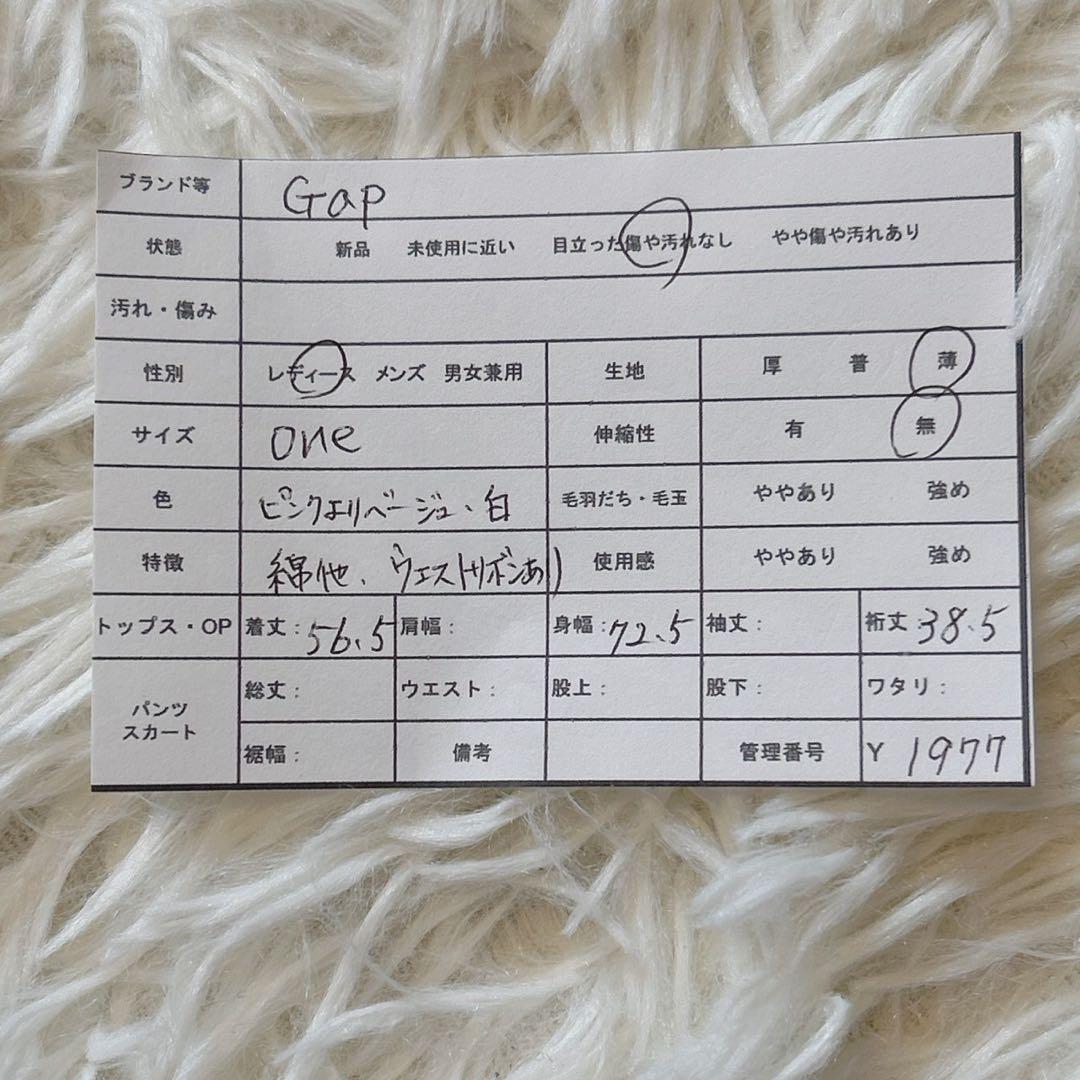 ブランド等 Gap
状態 新品 未使用に近い 目立った傷や汚れなし やや傷や汚れあり
汚れ・傷み
性別 レディース メンズ 男女兼用 生地 厚 普 薄
サイズ one 伸縮性 有 無
色 ピンクよりベージュ・白 毛羽だち・毛玉 ややあり 強め
特徴 綿他、ウエストリボンあり 使用感 ややあり 強め
トップス・OP 着丈:56.5 肩幅: 身幅:72.5 袖丈: 裄丈:38.5
パンツ スカート 総丈: ウエスト: 股上: 股下: ワタリ:
裾幅: 備考 管理番号 Y 1977